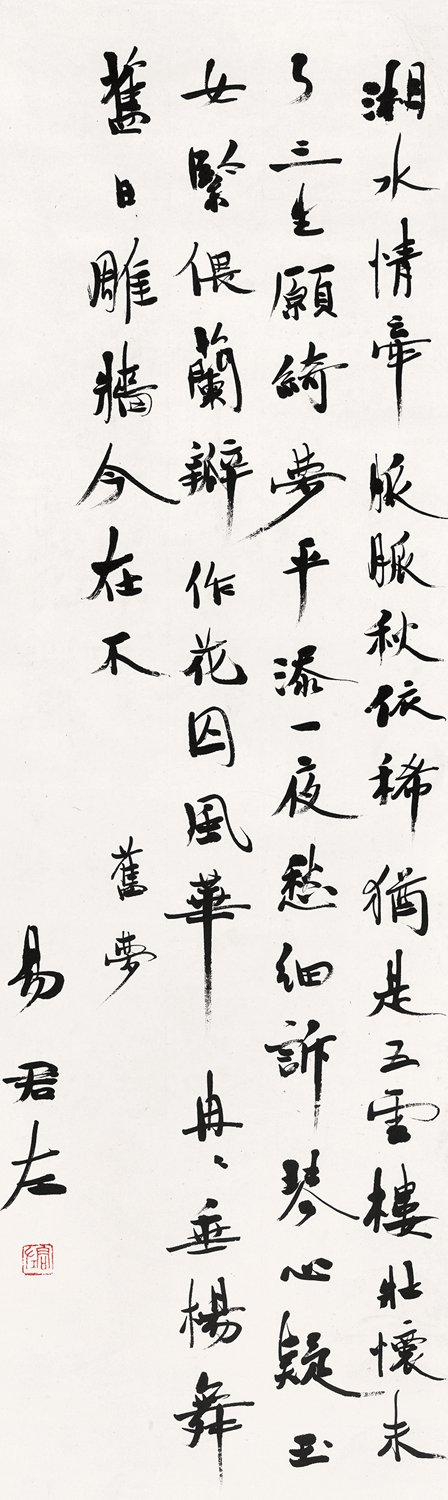 湘水情牽脈脈秋依稀猶是五雲樓壯懷未
了三生願綺夢平添一夜愁細訴琴心疑玉
女緊偎蘭辦作花囚風華冉〻垂楊舞
舊日雕牆今在不
舊夢
易君左